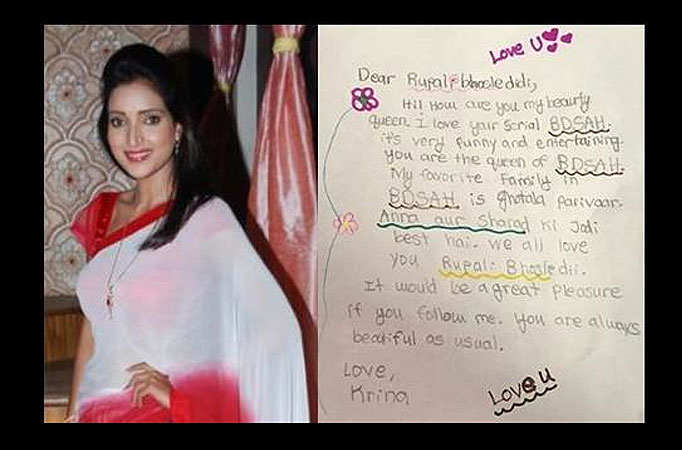 Love U
Dear Rupali bhosle didi,
Hi! How are you my beauty
queen. I love your serial BDSAH.
it's very funny and entertaining.
you are the queen of BDSAH.
My favorite Family in
BDSAH is Ghotala parivaar.
Anna aur Sharad Ki Jodi
best hai. we all love
you Rupali Bhosle dii.
It would be a great pleasure
if you follow me. you are always
beautiful as usual.
Love,
Krina
Love u